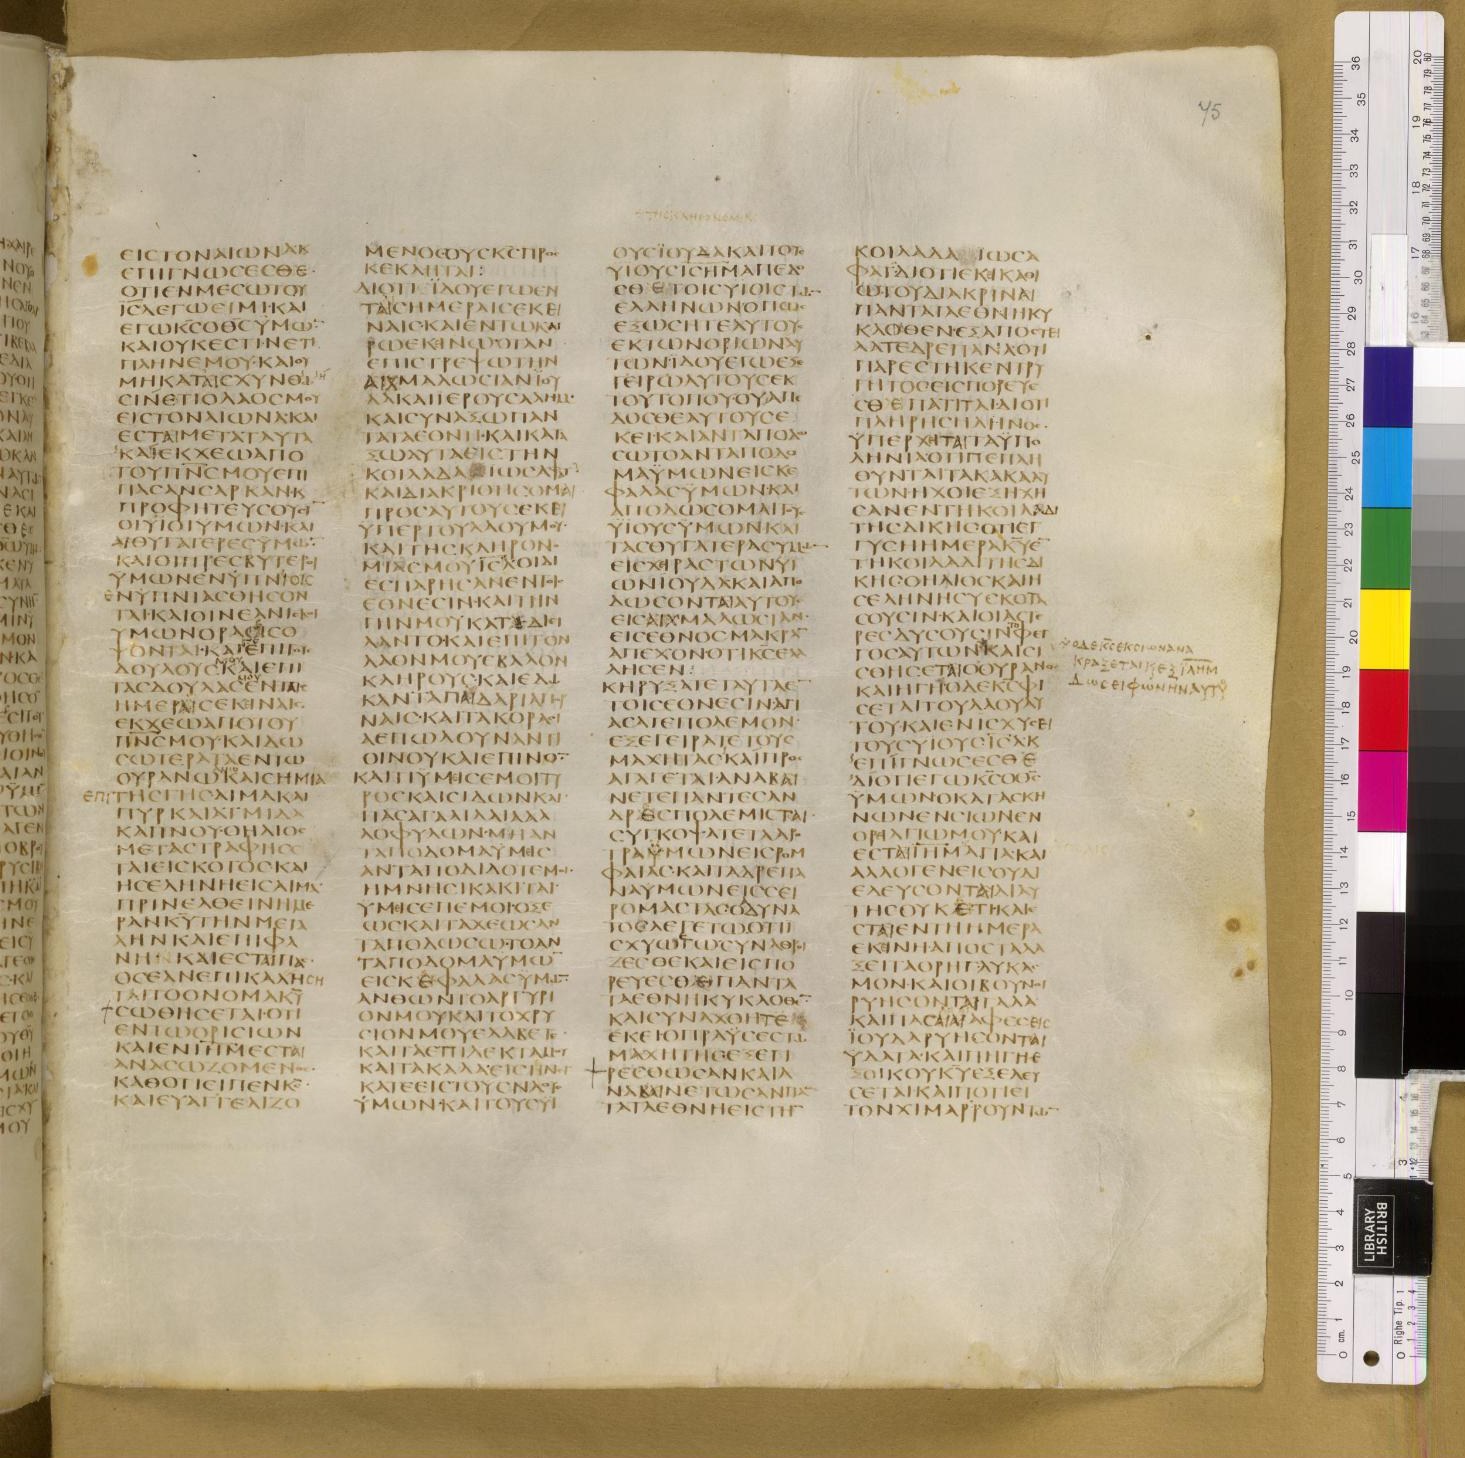 75
ΕΙϹΤΟΝΑΙΩΝΑΚ
ΕΠΙΓΝΩϹΕϹΘΕ·
ΟΤΙΕΝΜΕϹΩΤΟΥ
ΙϹΛΕΓΩΕΙΜΙ·ΚΑΙ
ΕΓΩΚϹΟΘϹΫΜΩ¯
ΚΑΙΟΥΚΕϹΤΙΝΕΤΙ
ΠΛΗΝΕΜΟΥ·ΚΑΙΟΥ
ΜΗΚΑΤΑΙϹΧΥΝΘΩϹΙΝ
ΕΤΙΟΛΑΟϹΜΟΥ
ΕΙϹΤΟΝΑΙΩΝΑ·ΚΑΙ
ΕϹΤΑΙΜΕΤΑΤΑΥΤΑ
ΚΑΙΕΚΧΕΩΑΠΟ
ΤΟΥΠΝϹΜΟΥΕΠΙ
ΠΑϹΑΝϹΑΡΚΑΝ·Κ
ΠΡΟΦΗΤΕΥϹΟΥϹΙ
ΟΙΥΪΟΙΥΜΩΝ·ΚΑΙ
ΑΙΘΥΓΑΤΕΡΕϹΫΜΩ¯
ΚΑΙΟΙΠΡΕϹΒΥΤΕΡΟΙ
ΥΜΩΝΕΝΥΠΝΙΟΙϹ
ΕΝΥΠΝΙΑϹΘΗϹΟΝ
ΤΑΙ·ΚΑΙΟΙΝΕΑΝΙϹΚΟΙ
ΥΜΩΝΟΡΑϹΙϹΟ
ΨΟΝΤΑΙ·ΚΑΙΕΠΙΤΟΥϹ
ΔΟΥΛΟΥϹΚΑΙΕΠΙ
ΤΑϹΔΟΥΛΑϹΕΝΤΑΙϹ
ΗΜΕΡΑΙϹΕΚΕΙΝΑΙϹ
ΕΚΧΕΩΑΠΟΤΟΥ
ΠΝϹΜΟΥ·ΚΑΙΔΩ
ϹΩΤΕΡΑΤΑΕΝΤΩ
ΟΥΡΑΝΩΚΑΙϹΗΜΙΑ
ΕΠΙΤΗϹΓΗϹΑΙΜΑΚΑΙ
ΠΥΡΚΑΙΑΤΜΙΔΑ
ΚΑΠΝΟΥ·ΟΗΛΙΟϹ
ΜΕΤΑϹΤΡΑΦΗϹΕ
ΤΑΙΕΙϹΚΟΤΟϹΚΑΙ
ΗϹΕΛΗΝΗΕΙϹΑΙΜΑ·
ΠΡΙΝΕΛΘΕΙΝΗΜΕ
ΡΑΝΚΥΤΗΝΜΕΓΑ
ΛΗΝΚΑΙΕΠΙΦΑ
ΝΗ·ΚΑΙΕϹΤΑΙΠΑϹ
ΟϹΕΑΝΕΠΙΚΑΛΗϹΗ
ΤΑΙΤΟΟΝΟΜΑΚΥ
ϹΩΘΗϹΕΤΑΙ·ΟΤΙ
ΕΝΤΩΟΡΙϹΙΩΝ
ΚΑΙΕΝΙΗΜΕϹΤΑΙ
ΑΝΑϹΩΖΟΜΕΝΟϹ
ΚΑΘΟΤΙΕΙΠΕΝΚϹ·
ΚΑΙΕΥΑΓΓΕΛΙΖΟ
ΜΕΝΟΙΟΥϹΚϹΠΡΟϹ
ΚΕΚΛΗΤΑΙ:
ΔΙΟΤΙΪΔΟΥΕΓΩΕΝ
ΤΑΙϹΗΜΕΡΑΙϹΕΚΕΙ
ΝΑΙϹΚΑΙΕΝΤΩΚΑΙ
ΡΩΕΚΕΙΝΩΟΤΑΝ
ΕΠΙϹΤΡΕΨΩΤΗΝ
ΑΙΧΜΑΛΩϹΙΑΝΪΟΥ
ΔΑΚΑΙΙΕΡΟΥϹΑΛΗΜ·
ΚΑΙϹΥΝΑΞΩΠΑΝ
ΤΑΤΑΕΘΝΗ·ΚΑΙΚΑΤΑ
ΞΩΑΥΤΑΕΙϹΤΗΝ
ΚΟΙΛΑΔΑΙΩϹΑΦΑΤ
ΚΑΙΔΙΑΚΡΙΘΗϹΟΜΑΙ
ΠΡΟϹΑΥΤΟΥϹΕΚΕΙ
ΫΠΕΡΤΟΥΛΑΟΥΜΟΥ·
ΚΑΙΤΗϹΚΛΗΡΟΝΟ
ΜΙΑϹΜΟΥΙϹΛΟΙΔΙ
ΕϹΠΑΡΗϹΑΝΕΝΤΟΙϹ
ΕΘΝΕϹΙΝ·ΚΑΙΤΗΝ
ΓΗΝΜΟΥΚΑΤΕΔΙΕΙ
ΛΑΝΤΟ·ΚΑΙΕΠΙΤΟΝ
ΛΑΟΝΜΟΥΕΒΑΛΟΝ
ΚΛΗΡΟΥϹΚΑΙΕΔΩ
ΚΑΝΤΑΠΑΙΔΑΡΙΑΠΟΡ
ΝΑΙϹ·ΚΑΙΤΑΚΟΡΑϹΙ
ΑΕΠΩΛΟΥΝΑΝΤΙ
ΟΙΝΟΥΚΑΙΕΠΙΝΟ¯·
ΚΑΙΤΙΫΜΕΙϹΕΜΟΙΤΥ
ΡΟϹΚΑΙϹΙΔΩΝΚΑΙ·
ΠΑϹΑΓΑΛΙΛΑΙΑΑΛ
ΛΟΦΥΛΩΝ·ΜΗΑΝ
ΤΑΠΟΔΟΜΑΫΜΕΙϹ
ΑΝΤΑΠΟΔΙΔΟΤΕΜΟΙ·
ΗΜΝΗϹΙΚΑΚΙΤΑΙ·
ΥΜΕΙϹΕΠΕΜΟΙΟΞΕ
ΩϹΚΑΙΤΑΧΕΩϹΑΝ
ΤΑΠΟΔΩϹΩΤΟΑΝ
ΤΑΠΟΔΟΜΑΥΜΩ¯
ΕΙϹΚΕΦΑΛΑϹΫΜΩ¯·
ΑΝΘΩΝΤΟΑΡΓΥΡΙ
ΟΝΜΟΥΚΑΙΤΟΧΡΥ
ϹΙΟΝΜΟΥΕΛΑΒΕΤΕ·
ΚΑΙΤΑΕΠΙΛΕΚΤΑΜΟΥ
ΚΑΙΤΑΚΑΛΑΕΙϹΗΝΕΓ
ΚΑΤΕΕΙϹΤΟΥϹΝΑΟΥϹ
ΫΜΩΝ·ΚΑΙΤΟΥϹΥΙ
ΟΥϹΪΟΥΔΑΚΑΙΤΟΥϹ
ΥΙΟΥϹΙϹΗΜΑΠΕΔΟ
ϹΘΕΤΟΙϹΥΙΟΙϹΤΩ¯
ΕΛΛΗΝΩΝΟΠΩϹ
ΕΞΩϹΗΤΕΑΥΤΟΥϹ
ΕΚΤΩΝΟΡΙΩΝΑΥ
ΤΩΝ·ΪΔΟΥΕΓΩΕΞΕ
ΓΕΙΡΩΑΥΤΟΥϹΕΚ
ΤΟΥΤΟΠΟΥΟΥΑΠΕ
ΔΟϹΘΕΑΥΤΟΥϹΕ
ΚΕΙ·ΚΑΙΑΝΤΑΠΟΔΩ
ϹΩΤΟΑΝΤΑΠΟΔΟ
ΜΑΫΜΩΝΕΙϹΚΕ
ΦΑΛΑϹΥΜΩΝ·ΚΑΙ
ΑΠΟΔΩϹΟΜΑΙΤΟΥϹ
ΫΙΟΥϹΥΜΩΝΚΑΙ
ΤΑϹΘΥΓΑΤΕΡΑϹΥΜΩ¯
ΕΙϹΧΕΙΡΑϹΤΩΝΥΙ
ΩΝΙΟΥΔΑΚΑΙΑΠΟ
ΔΩϹΟΝΤΑΙΑΥΤΟΥϹ
ΕΙϹΑΙΧΜΑΛΩϹΙΑΝ·
ΕΙϹΕΘΝΟϹΜΑΚΡΑ¯
ΑΠΕΧΟΝ·ΟΤΙΚϹΕΛΑ
ΛΗϹΕΝ:
ΚΗΡΥΞΑΤΕΤΑΥΤΑΕ¯
ΤΟΙϹΕΘΝΕϹΙΝΑΓΙ
ΑϹΑΤΕΠΟΛΕΜΟΝ·
ΕΞΕΓΕΙΡΑΤΕΤΟΥϹ
ΜΑΧΗΤΑϹΚΑΙΠΡΟϹ
ΑΓΑΓΕΤΑΙ·ΑΝΑΒΑΙ
ΝΕΤΕΠΑΝΤΕϹΑΝ
ΔΡΕϹΠΟΛΕΜΙϹΤΑΙ·
ϹΥΓΚΟΨΑΤΕΤΑΑΡΟ
ΤΡΑΫΜΩΝΕΙϹΡΟΜ
ΦΑΙΑϹ·ΚΑΙΤΑΔΡΕΠΑ
ΝΑΥΜΩΝΕΙϹϹΕΙ
ΡΟΜΑϹΤΑϹΟΔΥΝΑ
ΤΟϹΛΕΓΕΤΩΟΤΙΙ
ϹΧΥΩΕΓΩϹΥΝΑΘΡΟΙ
ΖΕϹΘΕΚΑΙΕΙϹΠΟ
ΡΕΥΕϹΘΕΠΑΝΤΑ
ΤΑΕΘΝΗΚΥΚΛΟΘΕ¯·
ΚΑΙϹΥΝΑΧΘΗΤΕ
ΕΚΕΙ·ΟΠΡΑΫϹΕϹΤΩ
ΜΑΧΗΤΗϹΕΞΕΓΙ
ΡΕϹΘΩϹΑΝΚΑΙΑ
ΝΑΒΑΙΝΕΤΩϹΑΝΠΑ¯
ΤΑΤΑΕΘΝΗΕΙϹΤΗΝ
ΚΟΙΛΑΔΑΙΩϹΑ
ΦΑΤ·ΔΙΟΤΙΕΚΕΙΚΑΘΙ
ΩΤΟΥΔΙΑΚΡΙΝΑΙ
ΠΑΝΤΑΤΑΕΘΝΗΚΥ
ΚΛΟΘΕΝ·ΕΞΑΠΟϹΤΕΙ
ΛΑΤΕΔΡΕΠΑΝΑΟΤΙ
ΠΑΡΕϹΤΗΚΕΝΤΡΥ
ΓΗΤΟϹΕΙϹΠΟΡΕΥΕ
ϹΘΕΠΑΤΙΤΑΙ·ΔΙΟΤΙ
ΠΛΗΡΗϹΗΛΗΝΟϹ·
ΫΠΕΡΧΗΤΑΙΤΑΫΠΟ
ΛΗΝΙΑΟΤΙΠΕΠΛΗ
ΘΥΝΤΑΙΤΑΚΑΚΑΑΥ
ΤΩΝ·ΗΧΟΙΕΞΗΧΗ
ϹΑΝΕΝΤΗΚΟΙΛΑΔΙ
ΤΗϹΔΙΚΗϹΟΤΙΕΓ
ΓΥϹΗΗΜΕΡΑΚΥΕ¯
ΤΗΚΟΙΛΑΔΙΤΗϹΔΙ
ΚΗϹΟΗΛΙΟϹΚΑΙΗ
ϹΕΛΗΝΗϹΥϹΚΟΤΑ
ϹΟΥϹΙΝ·ΚΑΙΟΙΑϹΤΕ
ΡΕϹΔΥϹΟΥϹΙΝΦΕΓ
ΓΟϹΑΥΤΩΝΚΑΙϹΙ
ϹΘΗϹΕΤΑΙΟΟΥΡΑΝΟϹ
ΚΑΙΗΓΗ·ΟΔΕΚϹΦΙ
ϹΕΤΑΙΤΟΥΛΑΟΥΑΥ
ΤΟΥ·ΚΑΙΕΝΙϹΧΥϹΕΙ
ΤΟΥϹΥΙΟΥϹΙϹΛΚ
ΕΠΙΓΝΩϹΕϹΘΕ
ΔΙΟΤΙΕΓΩΚϹΟΘϹ·
ΫΜΩΝΟΚΑΤΑϹΚΗ
ΝΩΝΕΝϹΙΩΝΕΝ
ΟΡΕΙΑΓΙΩΜΟΥ·ΚΑΙ
ΕϹΤΑΙΙΗΜΑΓΙΑ·ΚΑΙ
ΑΛΛΟΓΕΝΕΙϹΟΥΔΙ
ΕΛΕΥϹΟΝΤΑΙΔΙΑΥ
ΤΗϹΟΥΚΕΤΙ·ΚΑΙΕ
ϹΤΑΙΕΝΤΗΗΜΕΡΑ
ΕΚΕΙΝΗΑΠΟϹΤΑΛΑ
ΞΕΙΤΑΟΡΗΓΛΥΚΑϹ
ΜΟΝ·ΚΑΙΟΙΒΟΥΝΟΙ
ΡΥΗϹΟΝΤΑΙΓΑΛΑ·
ΚΑΙΠΑϹΑΙΑΙΑΦΕϹΕΙϹ
ΪΟΥΔΑΡΥΗϹΟΝΤΑΙ
ΫΔΑΤΑ·ΚΑΙΠΗΓΗΕ
ΞΟΙΚΟΥΚΥΕΞΕΛΕΥ
ϹΕΤΑΙΚΑΙΠΟΤΙΕΙ
ΤΟΝΧΙΜΑΡΡΟΥΝΤΩ¯
ΟΔΕΚϹΕΚϹΙΩΝΑΝΑ
ΚΡΑΞΕΤΑΙΚΕΞΙΛΗΜ
ΔΩϹΕΙΦΩΝΗΝΑΥΤΟΥ
BRITISH
LIBRARY